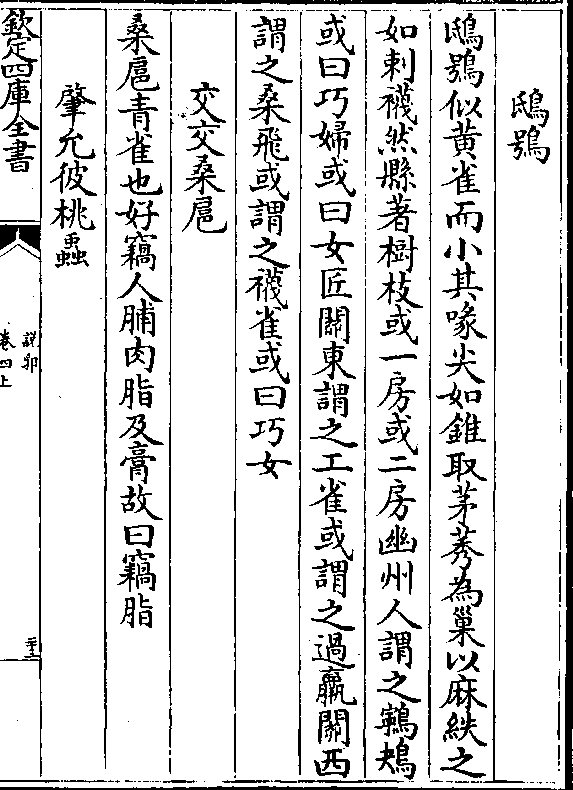 鴟鴞
鴟鴞似黃雀而小其喙尖如錐取茅莠為巢以麻紩之
如刺襪然縣著樹枝或一房或二房幽州人謂之鸋鴂
或曰巧婦或曰女匠關東謂之工雀或謂之過羸關西
謂之桑飛或謂之襪雀或曰巧女
交交桑扈
桑扈青雀也好竊人脯肉脂及膏故曰竊脂
肇允彼桃蟲
欽定四庫全書
說郛
卷四上